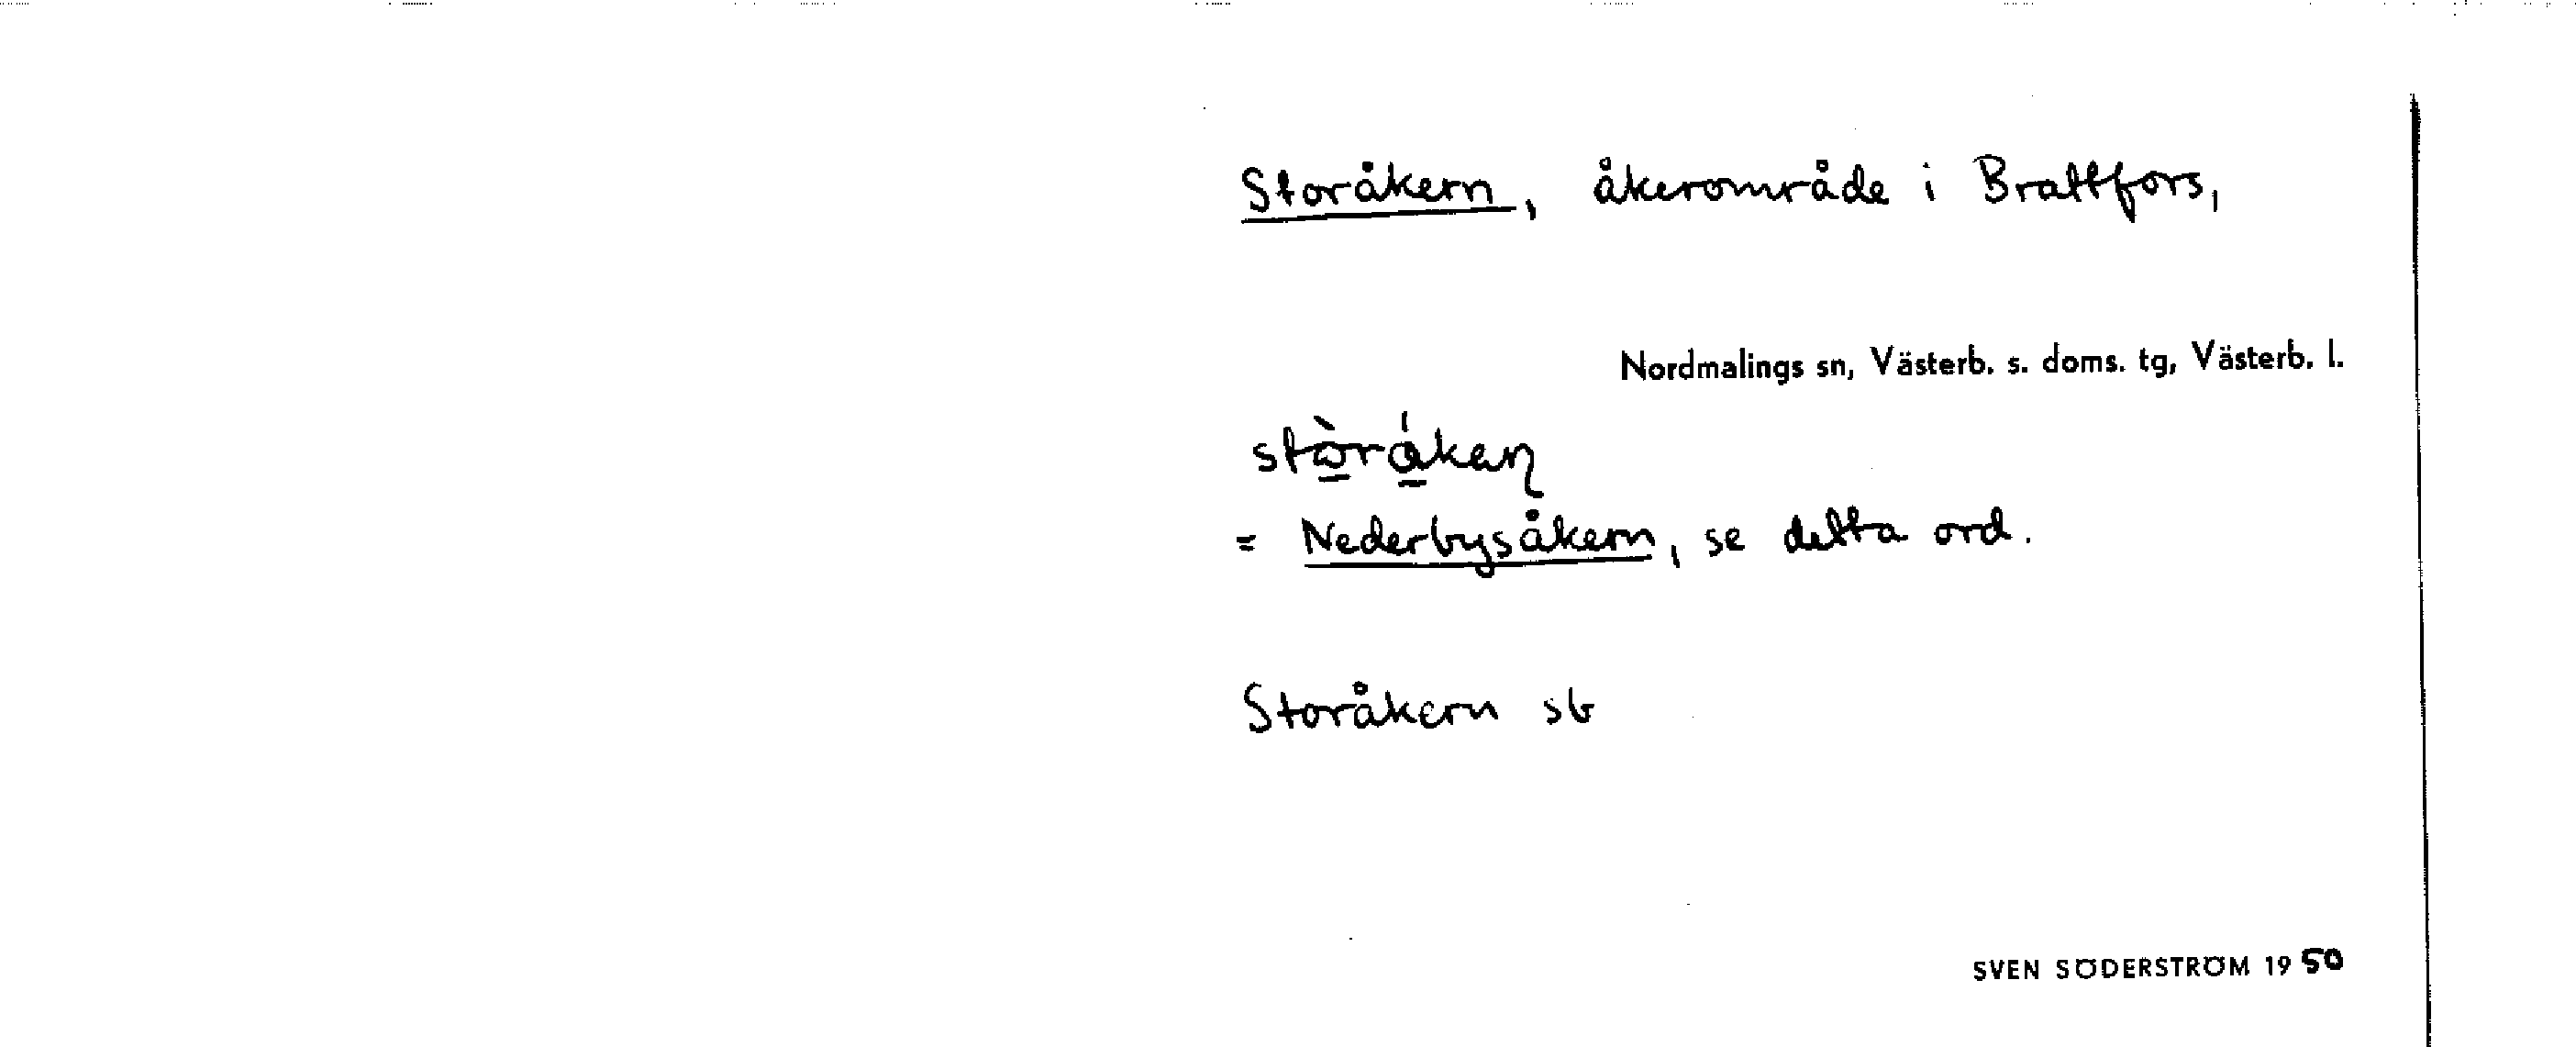 Storåkern, åkerområde i Brattfors,
Nordmalings sn, Västerb. s. doms. tg, Västerb. l.
= Nederbysåkern, se detta ord.
Storåkern sb
SVEN SÖDERSTRÖM 1950